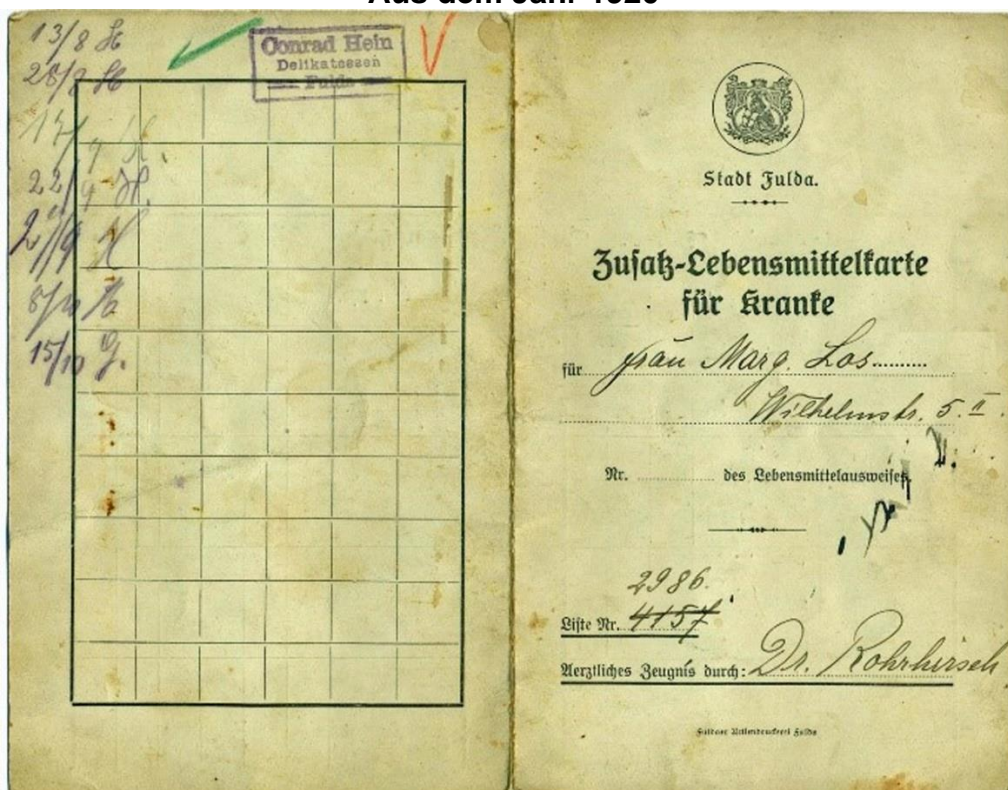 Aus dem Jahr
13/8
28/8
Conrad Hein
Delikatessen
Fulda
17/9
22/9
27/9
8/10
15/10
Stadt Fulda.
Zusatz-Lebensmittelkarte
für Kranke
für Frau Marg. Los
Wilhelmstr. 5. II
Nr. des Lebensmittelausweises.
2986.
Liste Nr. 4157
Aerztliches Zeugnis durch: Dr. Rohrhirsch
Fuldaer Actiendruckerei Fulda